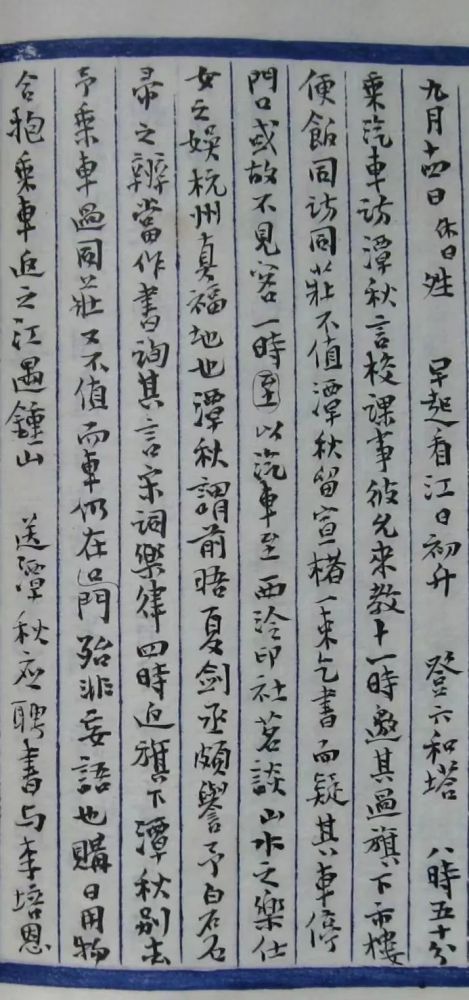 九月十四日 休日 姓 早起看江日初升 登六和塔 八時五十分
乘汽車訪潭秋言校課事彼允來教十一時邀其過旗下市樓
便飯同訪同莊不值潭秋留宣楮一束乞書而疑其車停
門口或故不見客一時至以汽車至西泠印社茗談山水之樂仕
女之娛杭州真福地也潭秋謂前晤夏劍丞頗譽予白石石
帚之辨當作書詢其言宋詞樂律四時返旗下潭秋別去
予乘車過同莊又不值而車仍在門殆非妄語也購日用物
合抱乘車返之江過鍾山 送潭秋應聘書与李培恩